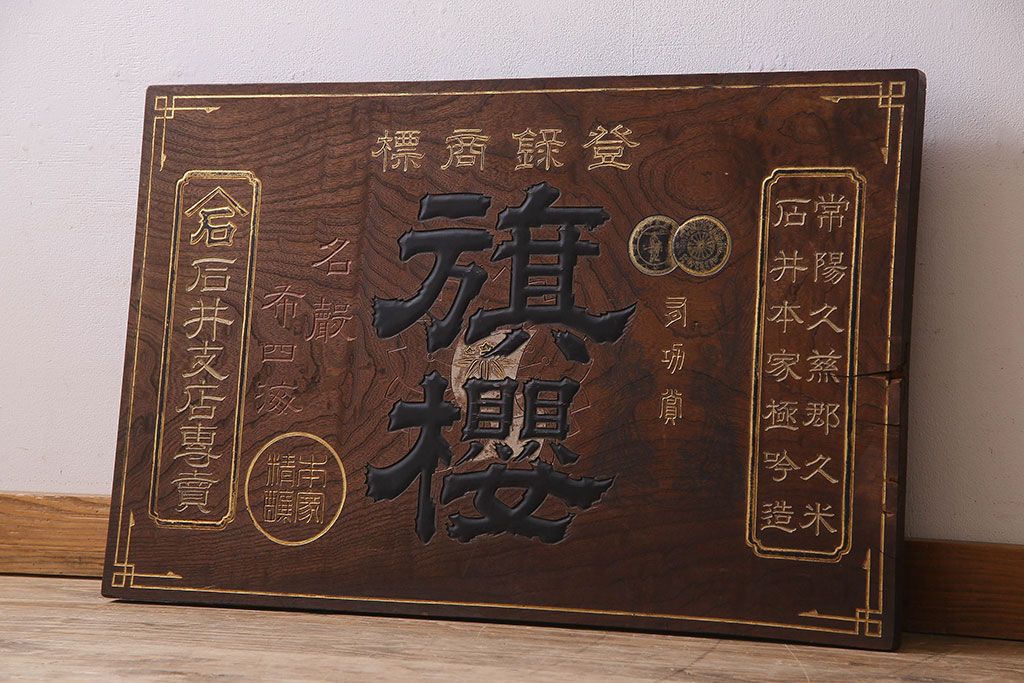 登録商標
常陽久慈郡久米
石井本家極吟造
有功賞
旗櫻
名聲
布四海
本家
精醸
石
石井支店専賣